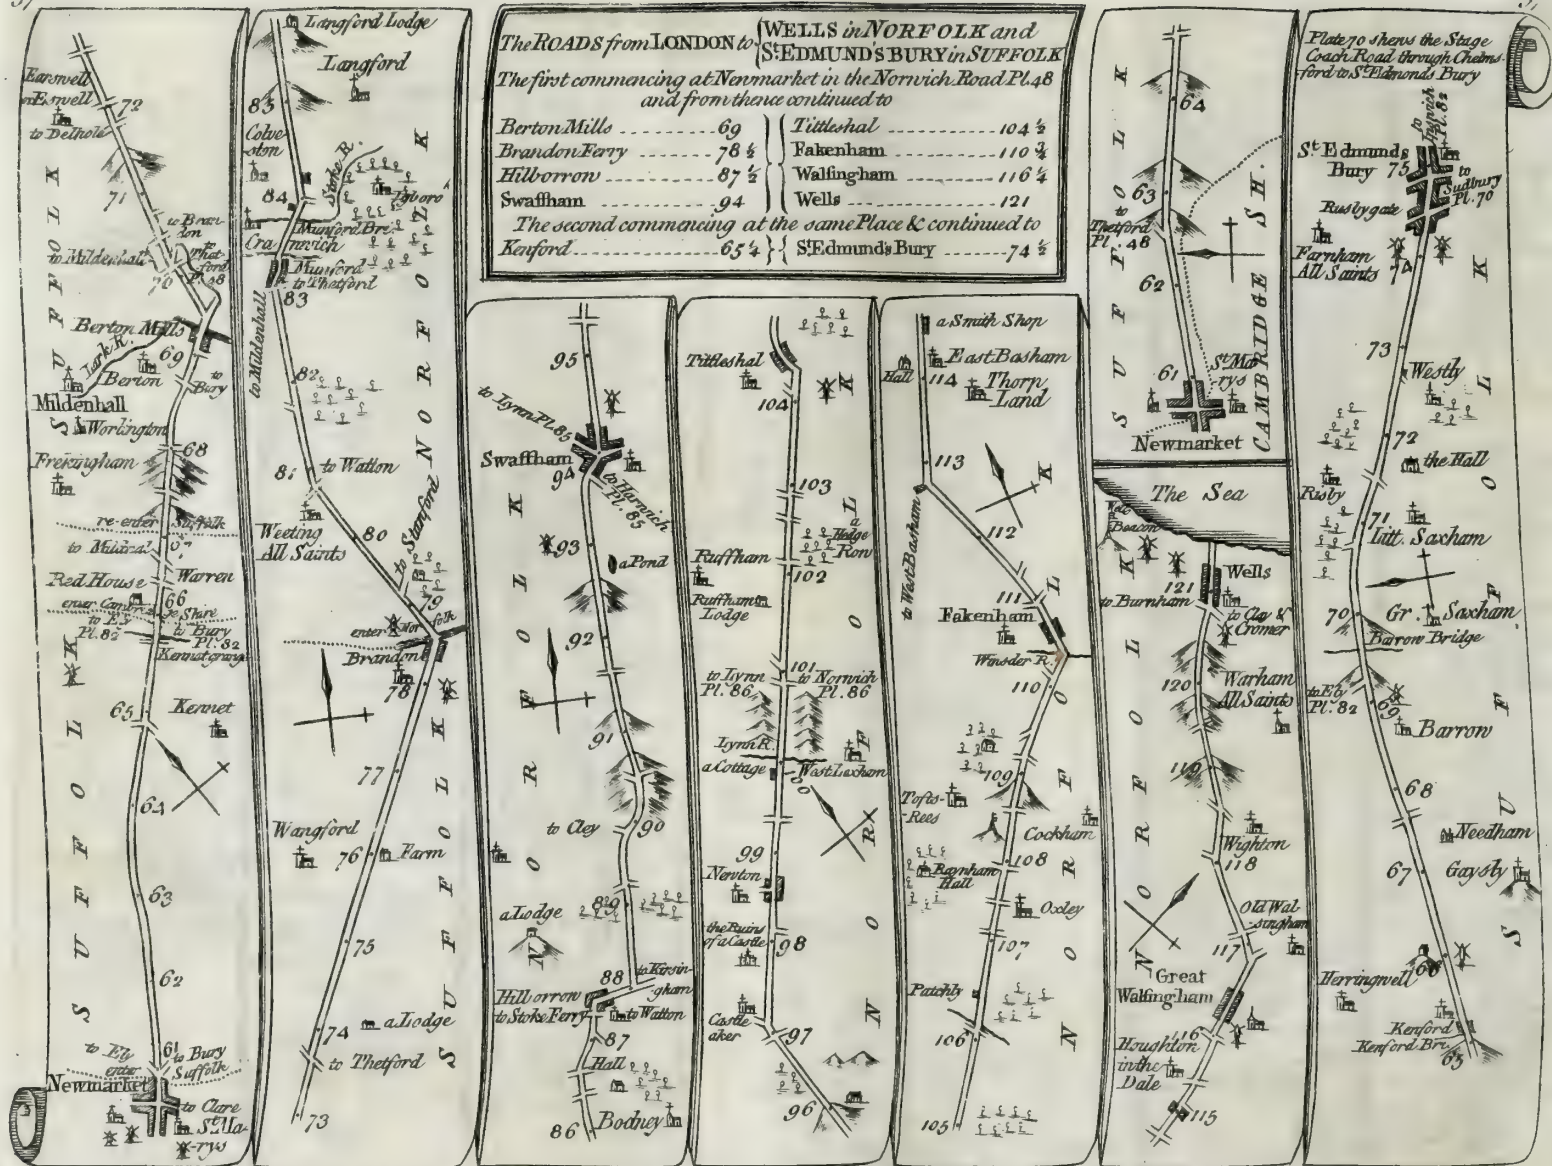 The ROADS from LONDON to {WELLS in NORFOLK and
St. EDMUND'S BURY in SUFFOLK
The first commencing at Newmarket in the Norwich Road Pl. 48
and from thence continued to
Berton Mills 69 Tittleshal 104 ½
Brandon Ferry 78 ½ Fakenham 110 ¾
Hilborron 87 ½ Walsingham 116 ¼
Swaffham 94 Wells 121
The second commencing at the same Place & continued to
Kenford 65 ¼ St. Edmund's Bury 74 ½
Earswell
or Eswell
72
to Delhole
71
to Bran
don
to Mildenhall
to Thet
ford
Pl. 48
70
Berton Mills
Lark R.
69
Berton
to
Bury
Mildenhall
Worlington
68
Frekingham
re-enter Suffolk
67
to Mildral
Red House
Warren
66
enter Cambri
ge Shire
to Ely
Pl. 82
to Bury
Pl. 82
Kennet grange
65
Kennet
64
63
62
61
to Ely
to Bury
enter
Suffolk
Newmarket
to Clare
St. Ma-
rys
SUFFOLK
SUFFOLK
Langford Lodge
Langford
83
Colve
ston
Stoke R.
84
Munford Bri.
Cranwich
Munford
to Thetford
83
to Mildenhall
NORFOLK
82
81
to Watton
Weeting
All Saints
80
to Stanford
79
enter Norfolk
Brandon
78
77
Wangford
76
Farm
75
74
a Lodge
to Thetford
73
SUFFOLK
95
to Lynn Pl. 85
Swaffham
94
to Harwich
Pl. 85
93
a Pond
92
91
90
to Cley
89
a Lodge
88
to Kirsin-
gham
Hilborrow
to Stoke Ferry
to Watton
87
Hall
Bodney
86
NORFOLK
Tittleshal
104
103
a
Hedge
Ron
Ruffham
102
Ruffham
Lodge
101
to Lynn
Pl. 86
to Norwich
Pl. 86
Lynn R.
a Cottage
West Lexham
100
99
Newton
the Ruins
of a Castle
98
Castle
aker
97
96
NORFOLK
a Smith Shop
Hall
East Basham
114
Thorn
Land
113
to West Basham
112
111
Fakenham
Winsder R.
110
109
Tofts-
Rees
Cockham
108
Raynham
Hall
Oxley
107
Patchly
106
105
NORFOLK
64
63
to
Thetford
Pl. 48
62
61
St. Ma
rys
Newmarket
SUFFOLK
CAMBRIDGE SH.
The Sea
Well
Beacon
Wells
121
to Burnham
to Clay &
Cromer
120
Warham
All Saints
119
Wighton
118
Old Wal-
singham
117
Great
Walsingham
116
Houghton
in the
Dale
115
NORFOLK
Plate 70 shews the Stage
Coach Road through Chelms-
ford to St. Edmonds Bury
to
Ipswich
Pl. 82
St. Edmunds
Bury 75
to
Sudbury
Pl. 70
Rusbygate
Farnham
All Saints
74
73
Westly
72
the Hall
Risby
71
Litt. Saxham
70
Gr. Saxham
Barrow Bridge
to Ely
Pl. 82
69
Barrow
68
Needham
67
Gaysly
66
Herringwell
Kenford
Kenford Bri.
65
SUFFOLK